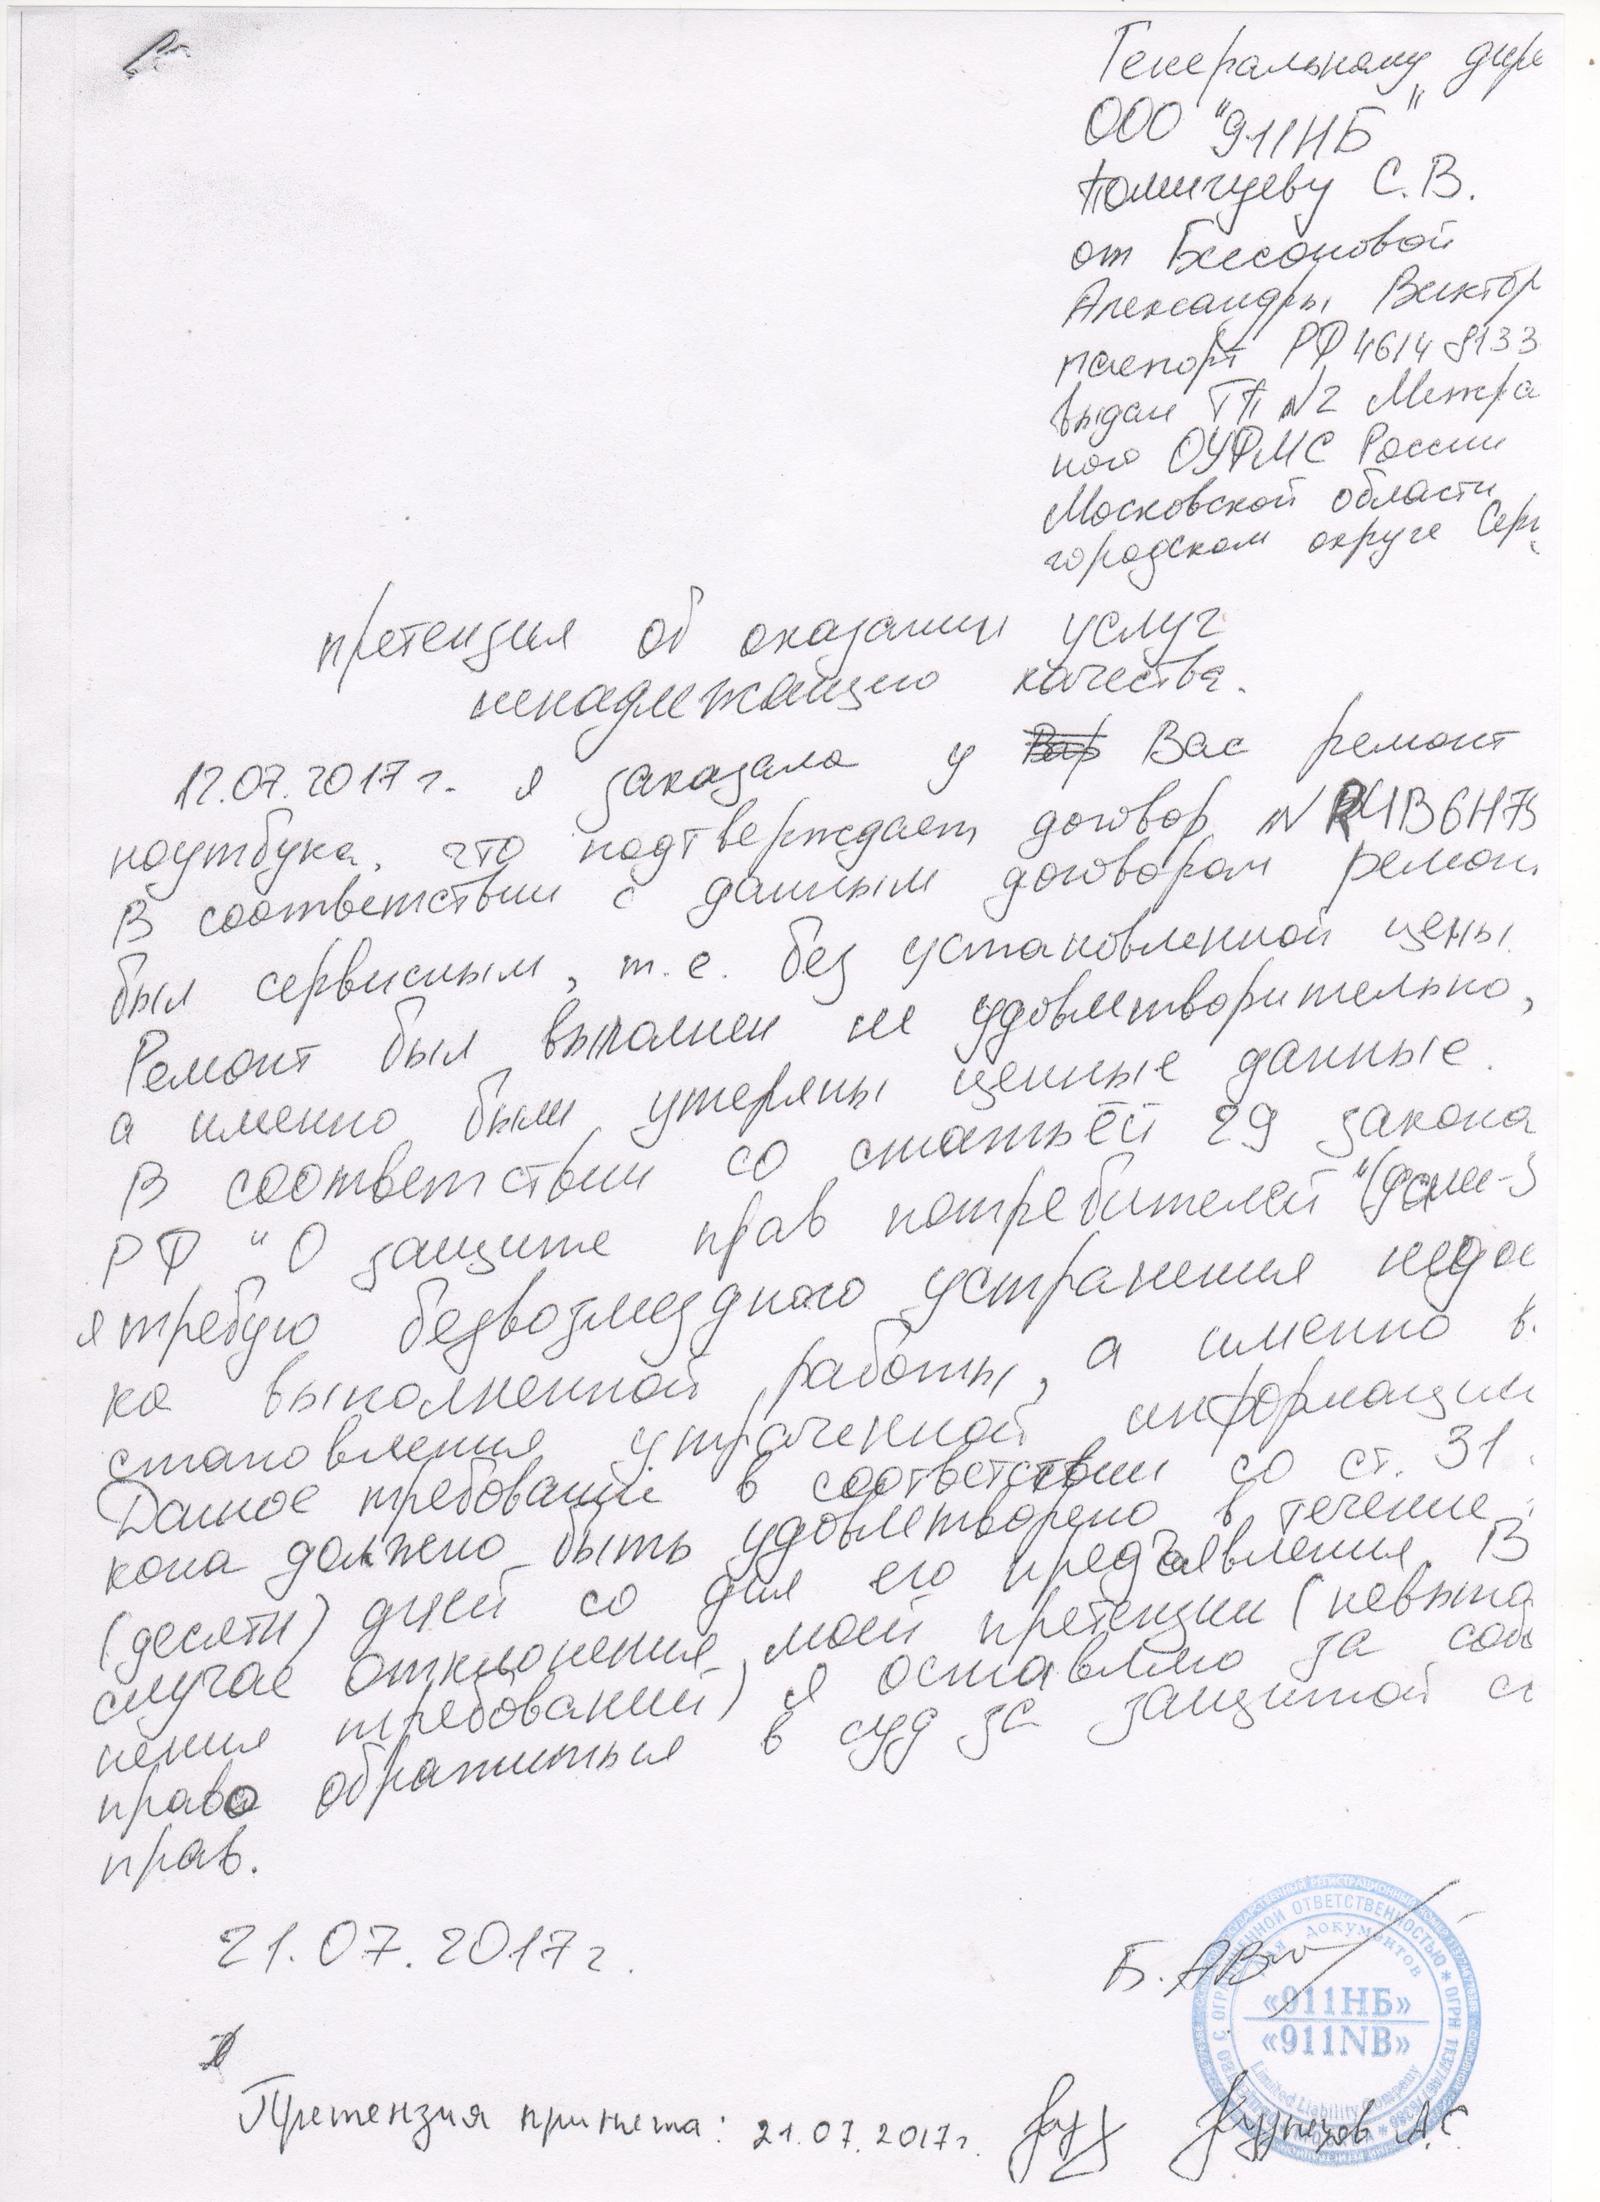 Генеральному дире
ООО "911НБ"
С.В.
от
Александры Виктор
паспорт РФ 4614 8133
выдан ТП №2 Межра
ного ОУФМС России
Московской области
городском округе Серп
претензия об оказании услуг
ненадлежащего качества.
12.07.2017г. я заказала у Вас ремонт
ноутбука, что подтверждает договор №
В соответствии с данным договором ремон
был сервисным, т.е. без установленной цены.
Ремонт был выполнен не удовлетворительно,
а именно были утеряны ценные данные.
В соответствии со статьёй 29 закона
РФ "О защите прав потребителей"
я требую безвозмездного устранения недос
ка выполненной работы, а именно в
становления утраченной информации
Данное требование в соответствии со ст. 31
кона должно быть удовлетворено в течение
(десяти) дней со дня его предъявления. В
случае отклонения моей претензии (невыпо
нения требований) я оставляю за собо
право обратиться в суд за защитой с
прав.
21.07.2017г.
Б.АВ
С ОГРАНИЧЕННОЙ ОТВЕТСТВЕННОСТЬЮ * ОГРН
для документов
«911НБ»
«911NB»
Limited Liability Company
Претензия принята: 21.07.2017г. Кузнецов А.С.